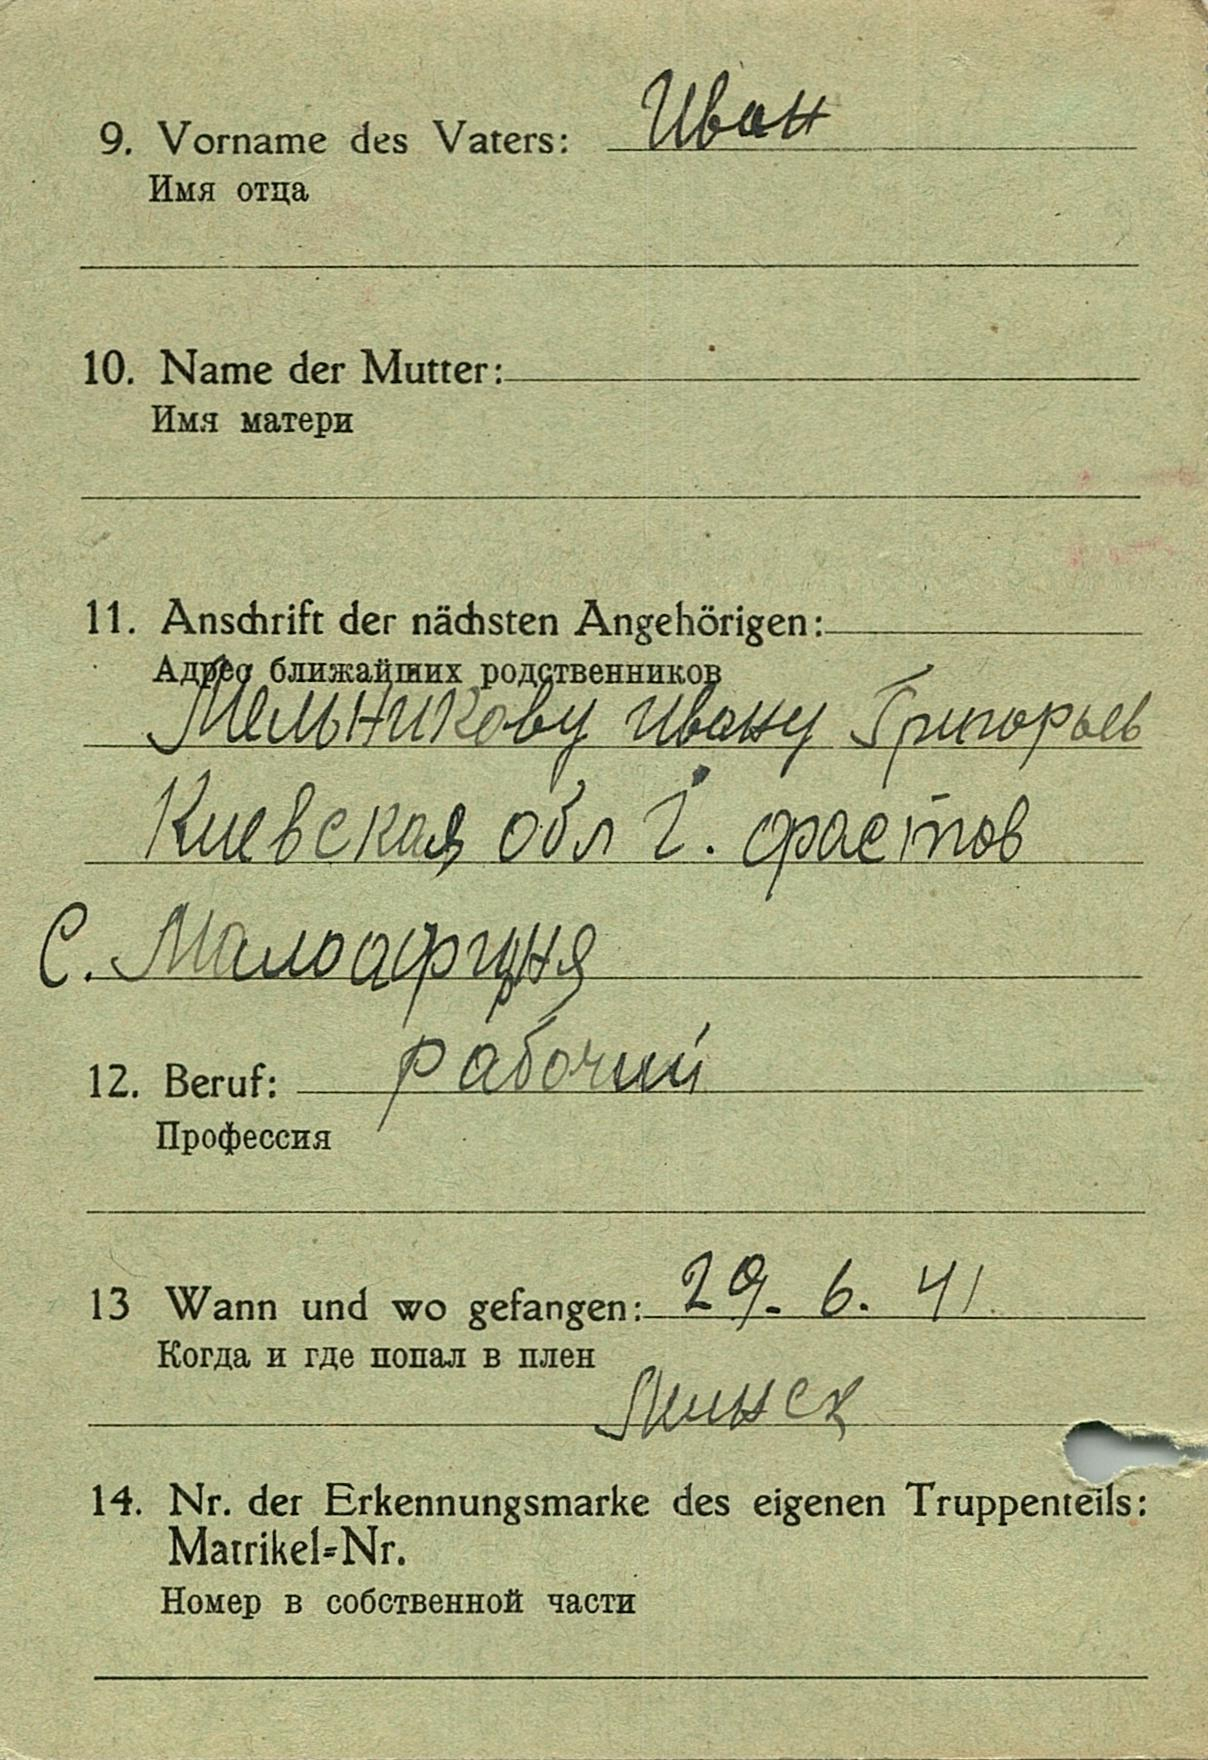 9. Vorname des Vaters: Иван
Имя отца
10. Name der Mutter:
Имя матери
11. Anschrift der nächsten Angehörigen:
Адрес ближайших родственников
Мельникову Ивану Григорьев
Киевская обл г. фастов
С. Малоафирня
12. Beruf: рабочий
Профессия
13 Wann und wo gefangen: 29. 6. 41.
Когда и где попал в плен
Минск
14. Nr. der Erkennungsmarke des eigenen Truppenteils:
Matrikel=Nr.
Номер в собственной части